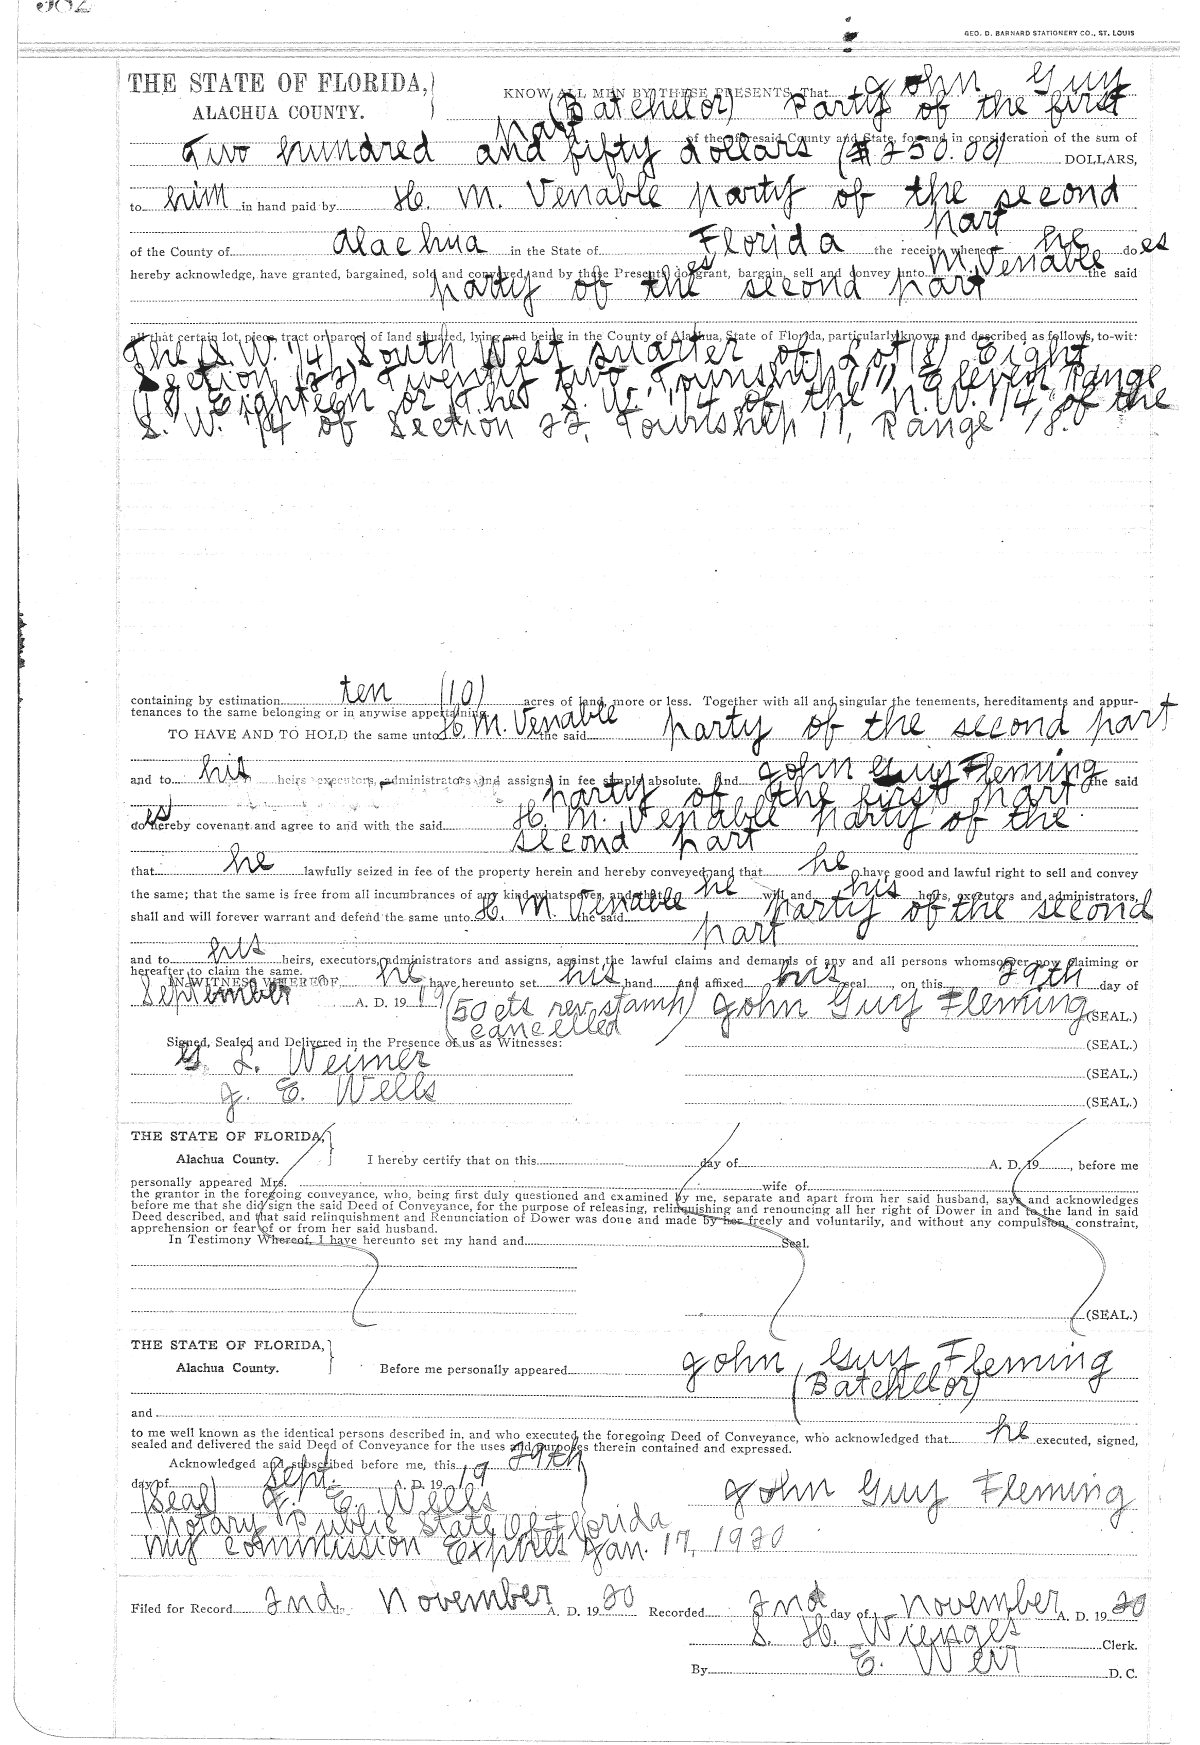 GEO. D. BARNARD STATIONERY CO., ST. LOUIS
THE STATE OF FLORIDA,
ALACHUA COUNTY.
KNOW ALL MEN BY THESE PRESENTS, That John Guy
(Batchelor) party of the first
part of the foresaid County and State, for and in consideration of the sum of
Two hundred and fifty dollars ($ 250.00) DOLLARS,
to him in hand paid by H. M. Venable party of the second
part
of the County of Alachua in the State of Florida the receipt whereof he does
hereby acknowledge, have granted, bargained, sold and conveyed, and by these Presents do es grant, bargain, sell and convey unto M. Venable the said
party of the second part
all that certain lot, piece, tract or parcel of land situated, lying and being in the County of Alachua, State of Florida, particularly known and described as follows, to-wit:
The (S.W. 1/4) South West quarter of Lot (8) Eight
Section (22) Twenty two Township (11) Eleven Range
(18) Eighteen or the S.W. 1/4 of the N.W. 1/4 of the
S. W. 1/4 of Section 22, Township 11, Range 18.
containing by estimation ten (10) acres of land, more or less. Together with all and singular the tenements, hereditaments and appur-
tenances to the same belonging or in anywise appertaining.
TO HAVE AND TO HOLD the same unto H. M. Venable the said party of the second part
and to his heirs executors, administrators and assigns in fee simple absolute. And John Guy Fleming the said
party of the first part
do es hereby covenant and agree to and with the said H. M. Venable party of the
second part
that he lawfully seized in fee of the property herein and hereby conveyed and that he have good and lawful right to sell and convey
the same; that the same is free from all incumbrances of any kind whatsoever, and that he will and his heirs, executors and administrators,
shall and will forever warrant and defend the same unto H. M. Venable the said party of the second
part
and to his heirs, executors, administrators and assigns, against the lawful claims and demands of any and all persons whomsoever now claiming or
hereafter to claim the same.
IN WITNESS WHEREOF he have hereunto set his hand and affixed his seal , on this 29th day of
September A. D. 19 19 (50 cts rev. stamp John Guy Fleming (SEAL.)
cancelled)
Signed, Sealed and Delivered in the Presence of us as Witnesses: (SEAL.)
L. Weimer (SEAL.)
J. E. Wells (SEAL.)
THE STATE OF FLORIDA,
Alachua County. I hereby certify that on this day of A. D. 19 , before me
personally appeared Mrs. wife of
the grantor in the foregoing conveyance, who, being first duly questioned and examined by me, separate and apart from her said husband, says and acknowledges
before me that she did sign the said Deed of Conveyance, for the purpose of releasing, relinquishing and renouncing all her right of Dower in and to the land in said
Deed described, and that said relinquishment and Renunciation of Dower was done and made by her freely and voluntarily, and without any compulsion, constraint,
apprehension or fear of or from her said husband.
In Testimony Whereof, I have hereunto set my hand and Seal.
(SEAL.)
THE STATE OF FLORIDA,
Alachua County. Before me personally appeared John Guy Fleming
(Batchelor)
and
to me well known as the identical persons described in, and who executed the foregoing Deed of Conveyance, who acknowledged that he executed, signed,
sealed and delivered the said Deed of Conveyance for the uses and purposes therein contained and expressed.
Acknowledged and subscribed before me, this 29th
day of Sept. A. D. 19 19
(Seal) J. E. Wells John Guy Fleming
Notary Public State of Florida
My commission Expires Jan. 17, 1920
Filed for Record 2nd November A. D. 19 20 Recorded 2nd day of November A. D. 19 20
S. H. Wienges Clerk.
By E. Weir D. C.